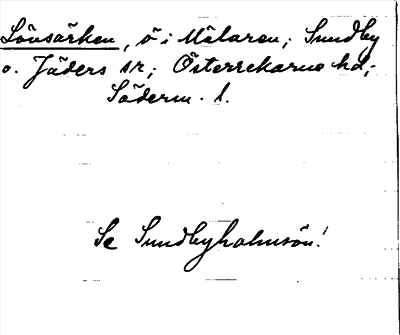 Lövsärken, ö i Mälaren; Sundby
o. Jäders sn; Österrekarne hd;
Söderm. l.
Se Sundbyholmsön!